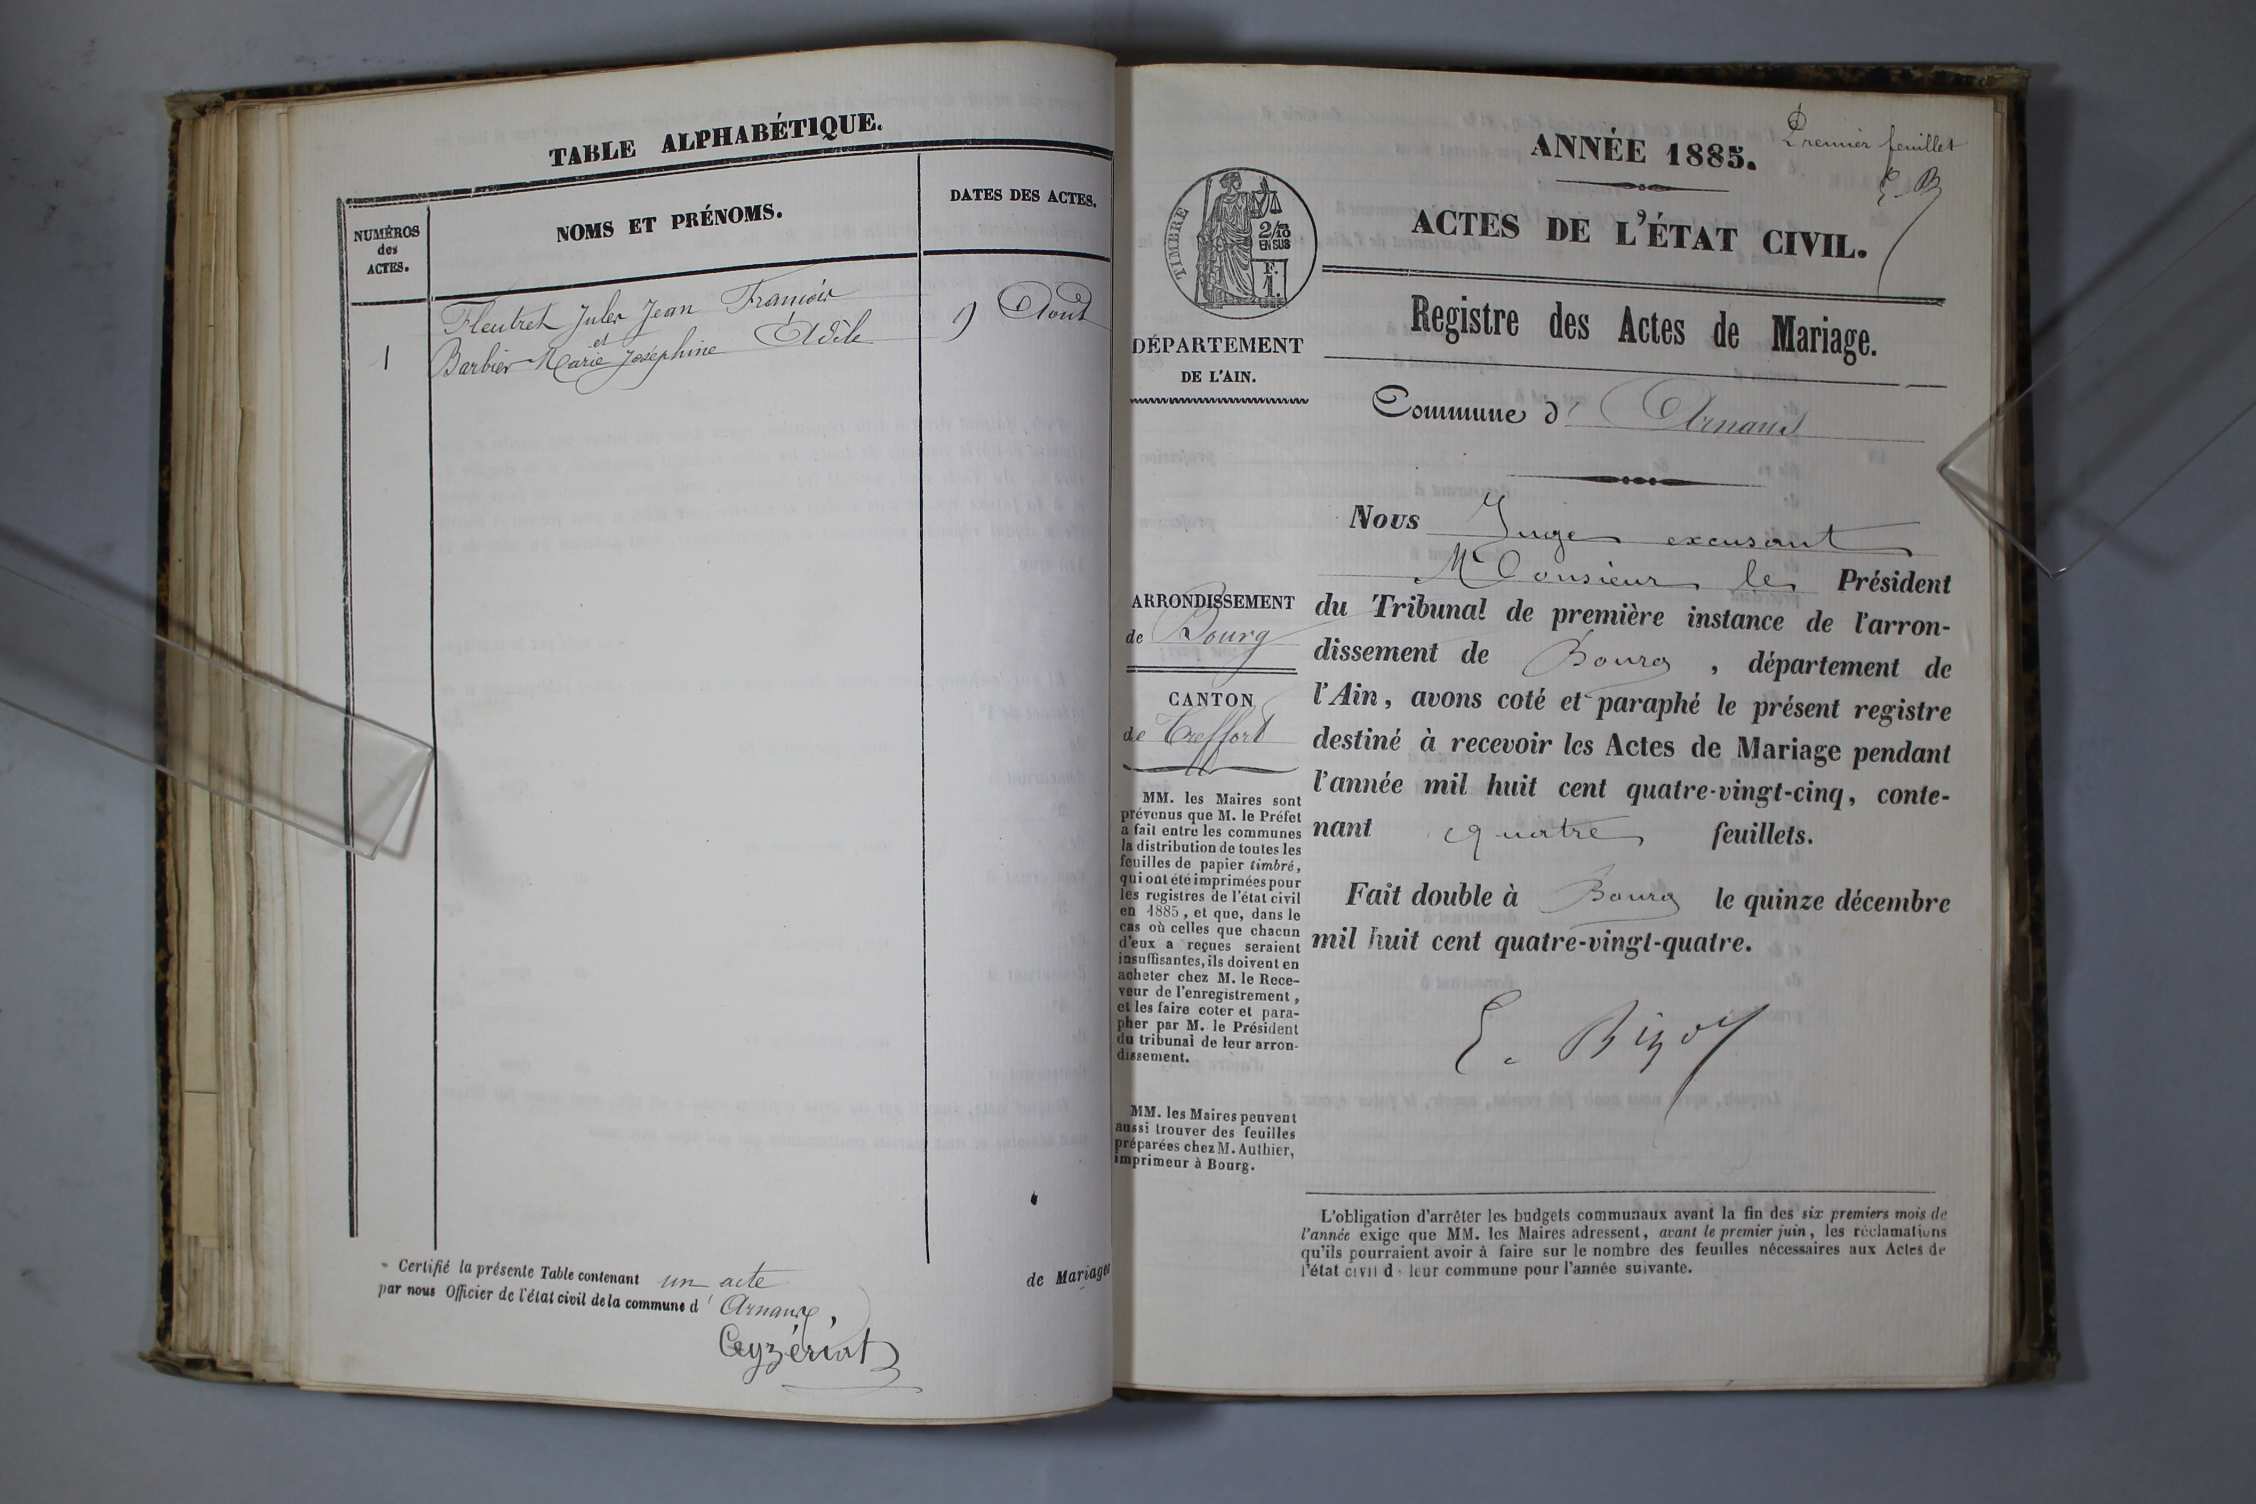 TABLE ALPHABÉTIQUE.
NUMÉROS
des
ACTES.
NOMS ET PRÉNOMS.
DATES DES ACTES.
1
Fleutret Jules Jean François
et
Barbier Marie Joséphine Adèle
9 Août
Certifié la présente Table contenant un acte de Mariages
par nous Officier de l'état civil de la commune d' Arnans,
Ceyzériat
Premier feuillet
E. B
ANNÉE 1885.
ACTES DE L'ÉTAT CIVIL.
TIMBRE
2/10
EN SUS
F.
1.
Registre des Actes de Mariage.
DÉPARTEMENT
DE L'AIN.
Commune d' Arnans
ARRONDISSEMENT
de Bourg
CANTON
de Treffort
MM. les Maires sont
prévenus que M. le Préfet
a fait entre les communes
la distribution de toutes les
feuilles de papier timbré,
qui ont été imprimées pour
les registres de l'état civil
en 1885, et que, dans le
cas où celles que chacun
d'eux a reçues seraient
insuffisantes, ils doivent en
acheter chez M. le Rece-
veur de l'enregistrement,
et les faire coter et para-
pher par M. le Président
du tribunal de leur arron-
dissement.
MM. les Maires peuvent
aussi trouver des feuilles
préparées chez M. Authier,
imprimeur à Bourg.
Nous Juge excusant
Monsieur le Président
du Tribunal de première instance de l'arron-
dissement de Bourg, département de
l'Ain, avons coté et paraphé le présent registre
destiné à recevoir les Actes de Mariage pendant
l'année mil huit cent quatre-vingt-cinq, conte-
nant quatre feuillets.
Fait double à Bourg le quinze décembre
mil huit cent quatre-vingt-quatre.
E. Bizot
L'obligation d'arrêter les budgets communaux avant la fin des six premiers mois de
l'année exige que MM. les Maires adressent, avant le premier juin, les réclamations
qu'ils pourraient avoir à faire sur le nombre des feuilles nécessaires aux Actes de
l'état civil d leur commune pour l'année suivante.